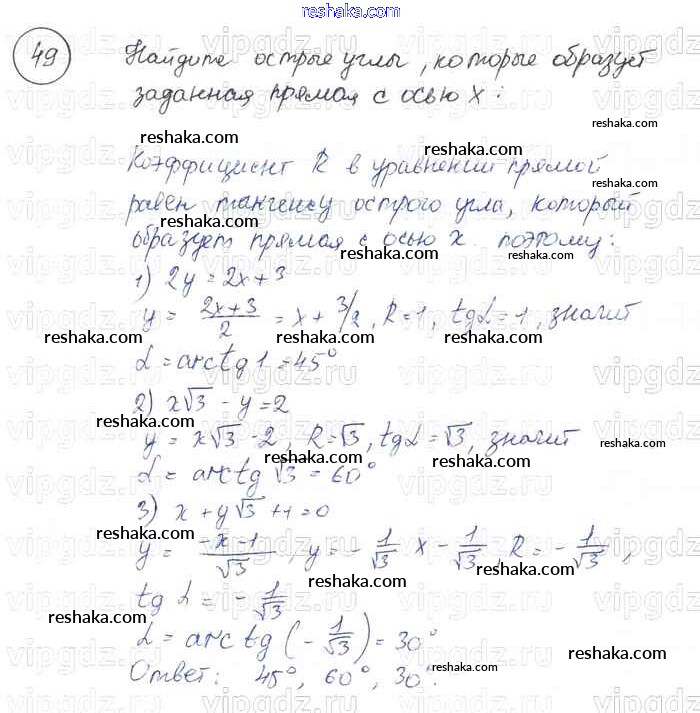 reshaka.com
49 Найдите острые углы, которые образует
заданная прямая с осью x:
reshaka.com
reshaka.com
Коэффициент R в уравнении прямой
равен тангенсу острого угла, который
reshaka.com
reshaka.com
образует прямая с осью x поэтому:
reshaka.com
1) 2y = 2x + 3
y = (2x + 3)/2 = x + 3/2, R = 1, tg L = 1, значит
reshaka.com
reshaka.com
reshaka.com
L = arctg 1 = 45°
2) x√3 - y = 2
reshaka.com
y = x√3 - 2, R = √3, tg L = √3, значит
reshaka.com
reshaka.com
L = arctg √3 = 60°
reshaka.com
3) x + y√3 + 1 = 0
reshaka.com
reshaka.com
y = (-x - 1)/√3, y = - 1/√3 x - 1/√3, R = - 1/√3,
reshaka.com
reshaka.com
tg L = - 1/√3
reshaka.com
L = arctg (- 1/√3) = 30°
reshaka.com
Ответ: 45°, 60°, 30°.
reshaka.com
reshaka.com
vipgdz.ru